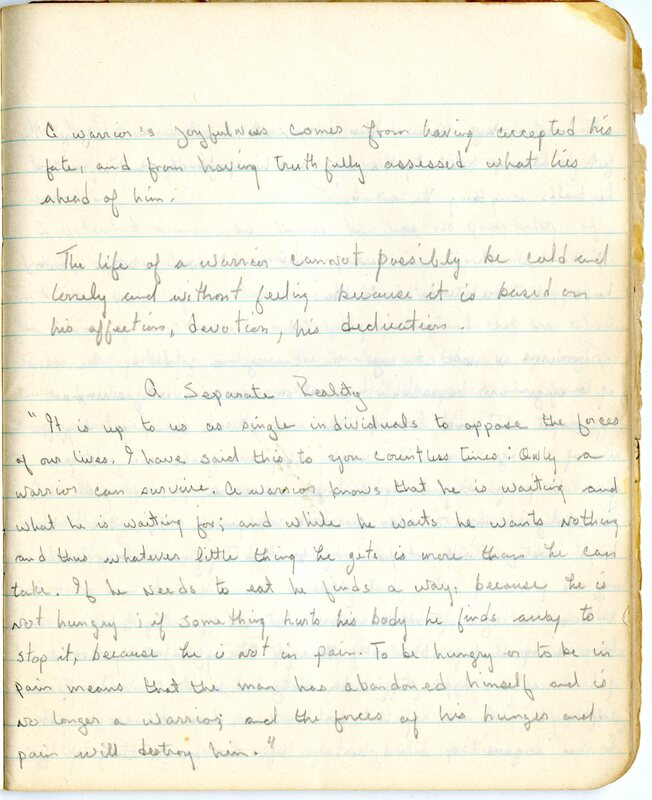 A warrior's joyfulness comes from having accepted his
fate, and from having truthfully assessed what lies
ahead of him.
The life of a warrior cannot possibly be cold and
lonely and without feeling because it is based on
his affection, devotion, his dedication.
A Separate Reality
"It is up to us as single individuals to oppose the forces
of our lives. I have said this to you countless times: Only a
warrior can survive. A warrior knows that he is waiting and
what he is waiting for; and while he waits he wants nothing
and thus whatever little thing he gets is more than he can
take. If he needs to eat he finds a way, because he is
not hungry; if something hurts his body he finds away to
stop it, because he is not in pain. To be hungry or to be in
pain means that the man has abandoned himself and is
no longer a warrior; and the forces of his hunger and
pain will destroy him."